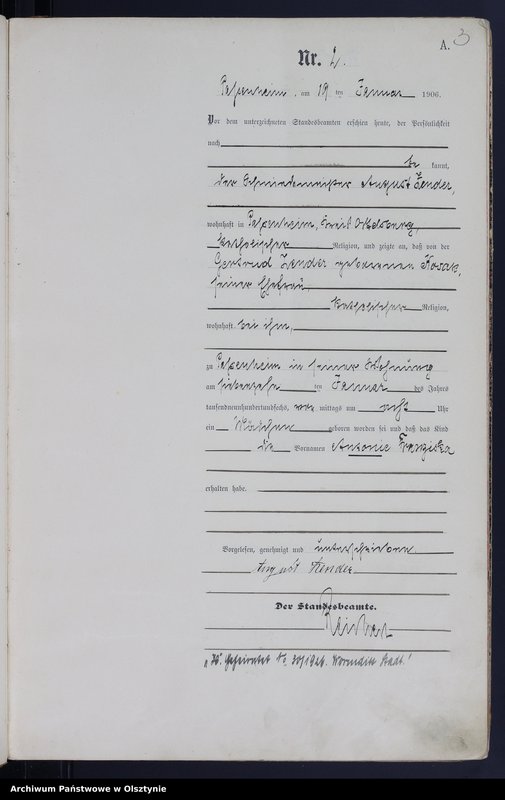 A. 3
Nr. 2.
am 19 ten Januar 1906.
Vor dem unterzeichneten Standesbeamten erschien heute, der Persönlichkeit
nach
be kannt,
der Schmiedemeister August Zender,
wohnhaft in Passenheim, Kreis Ortelsburg,
katholischer Religion, und zeigte an, daß von der
Gertrud Zender geborenen Nowak,
seiner Ehefrau,
katholischer Religion,
wohnhaft bei ihm,
zu Passenheim in seiner Wohnung
am siebenzehn ten Januar des Jahres
tausendneunhundertundsechs, vor mittags um acht Uhr
ein Mädchen geboren worden sei und daß das Kind
die Vornamen Antonie Franziska
erhalten habe.
Vorgelesen, genehmigt und unterschrieben
August Zender
Der Standesbeamte.
Geheiratet No 30/1926. Wormditt Stadt.
Archiwum Państwowe w Olsztynie